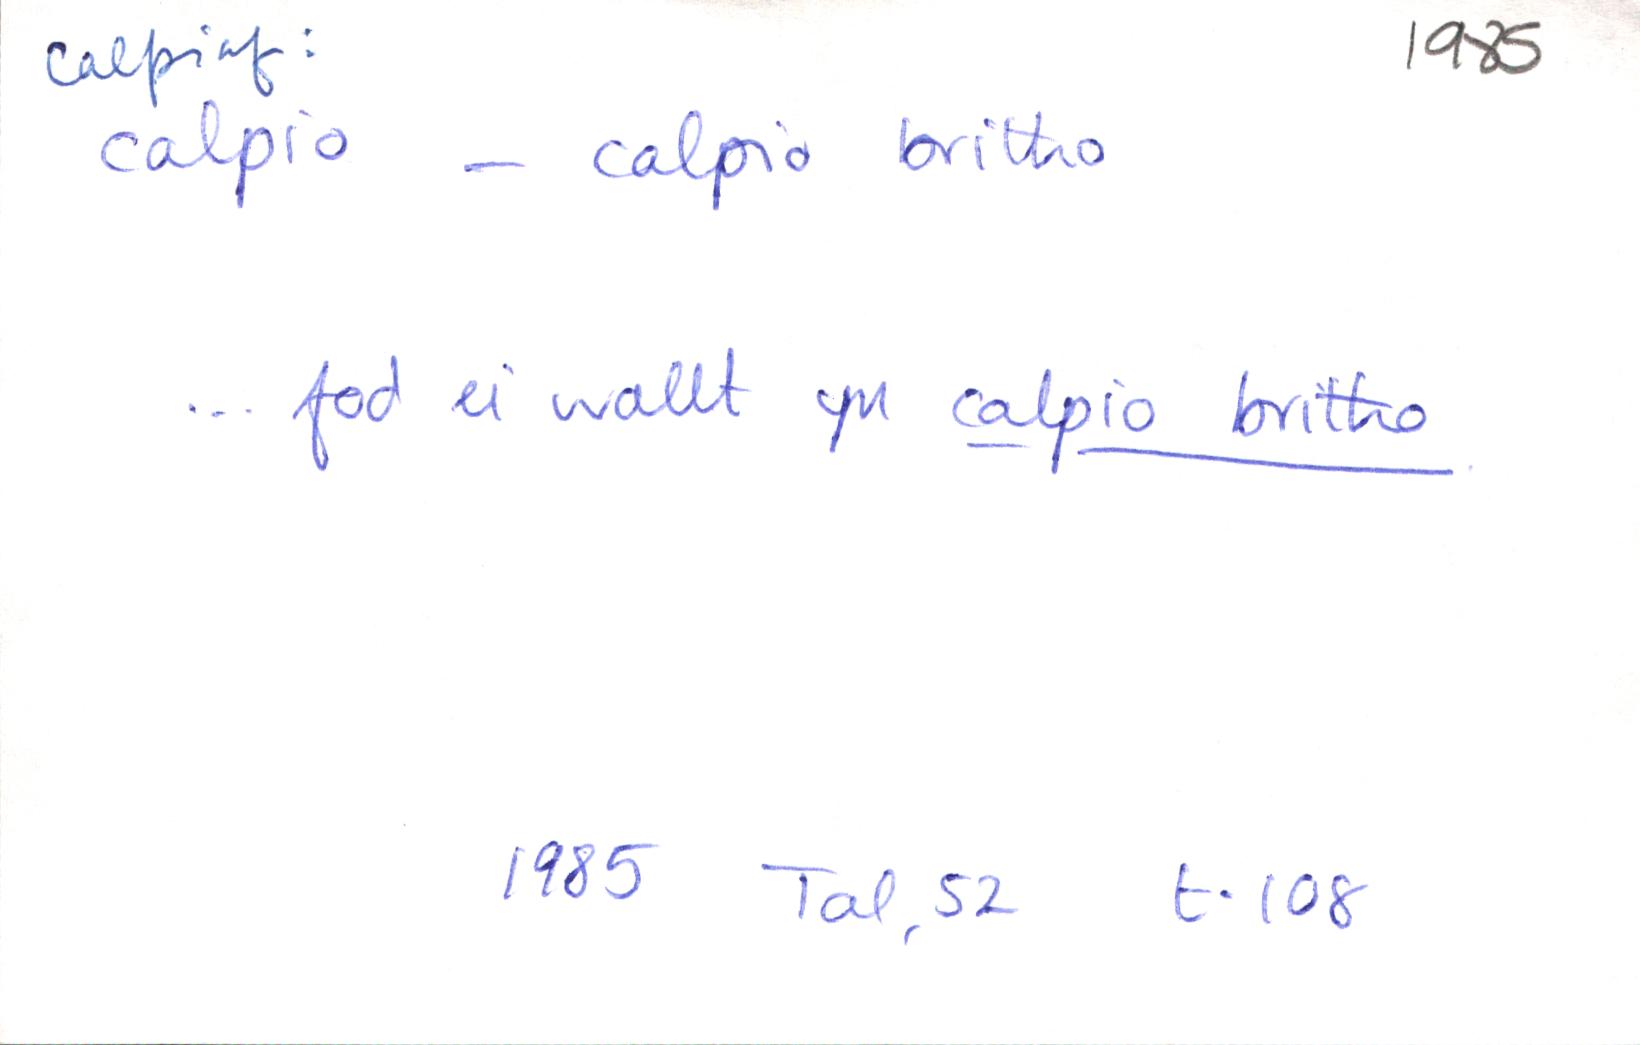 calpiaf: 1985
calpio – calpio britho
... fod ei wallt yn calpio britho
1985 Tal, 52 t. 108